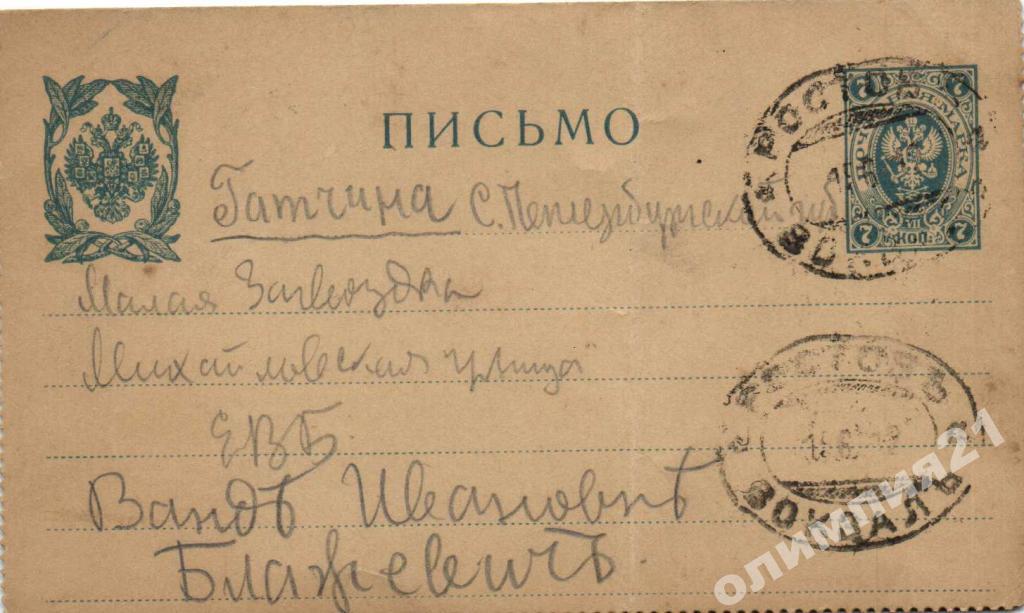 ПИСЬМО
7 7
ПОЧТ. МАРКА
7 КОП. 7
РОСТОВЪ
Гатчина С. Петербургской губ
Малая Загвоздка
Михайловская улица
ЕВБ.
Вандѣ Ивановнѣ
Блажевичъ
РОСТОВЪ
ВОКЗАЛЪ
олимпия21